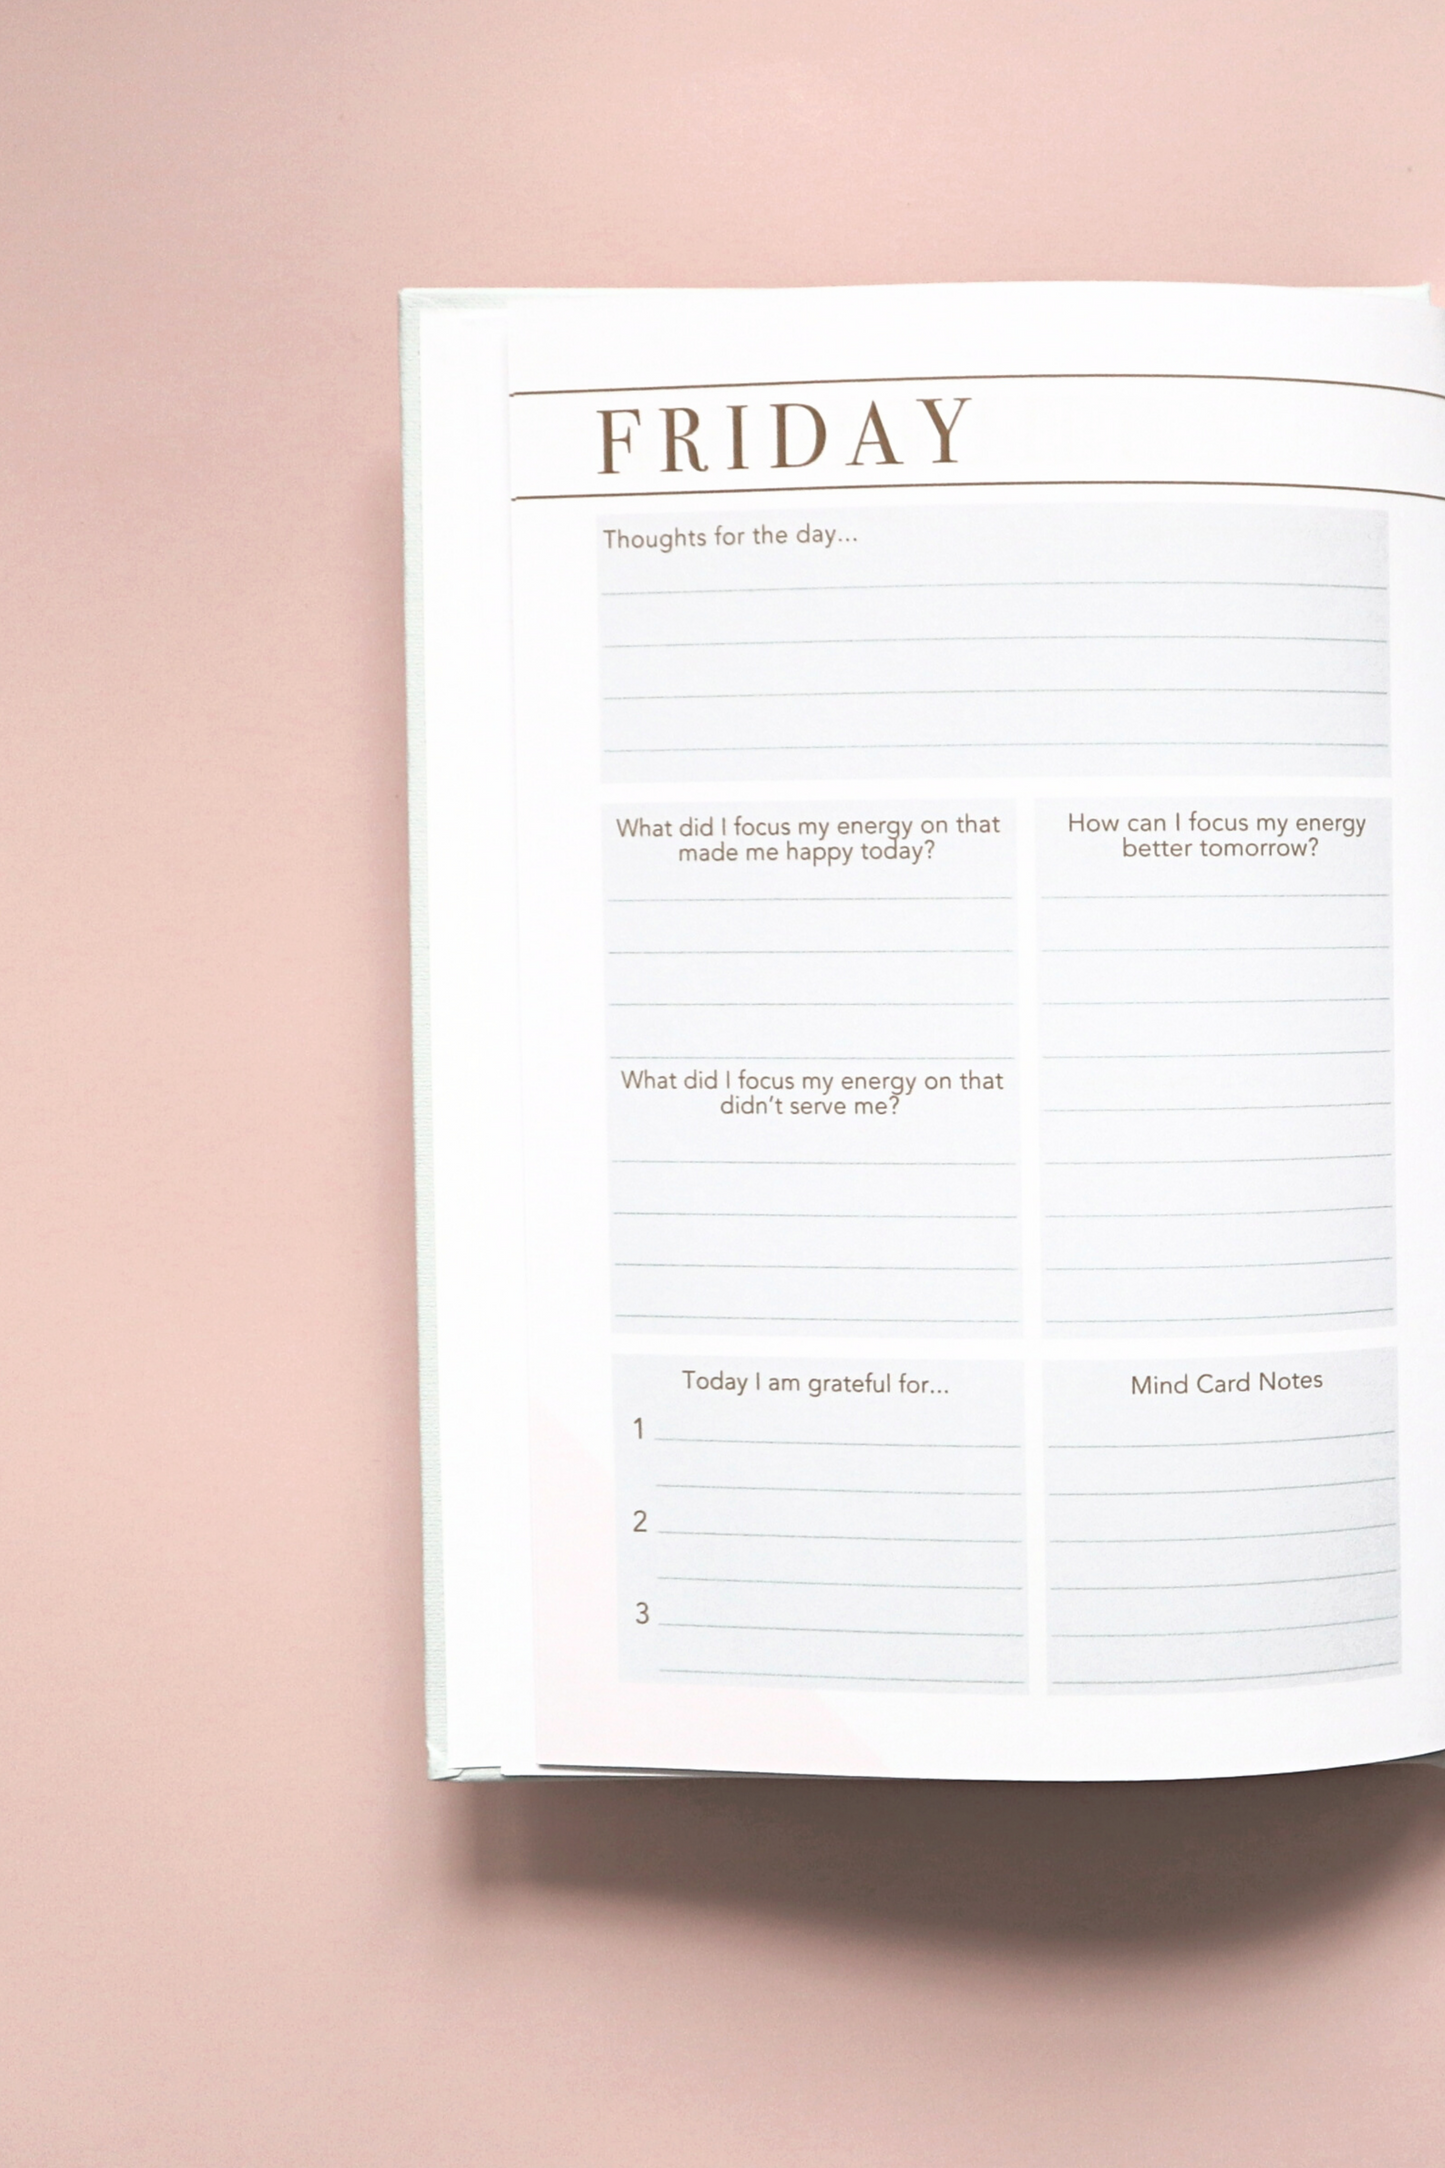 FRIDAY
Thoughts for the day...
What did I focus my energy on that
made me happy today?
What did I focus my energy on that
didn't serve me?
How can I focus my energy
better tomorrow?
Today I am grateful for...
1
2
3
Mind Card Notes